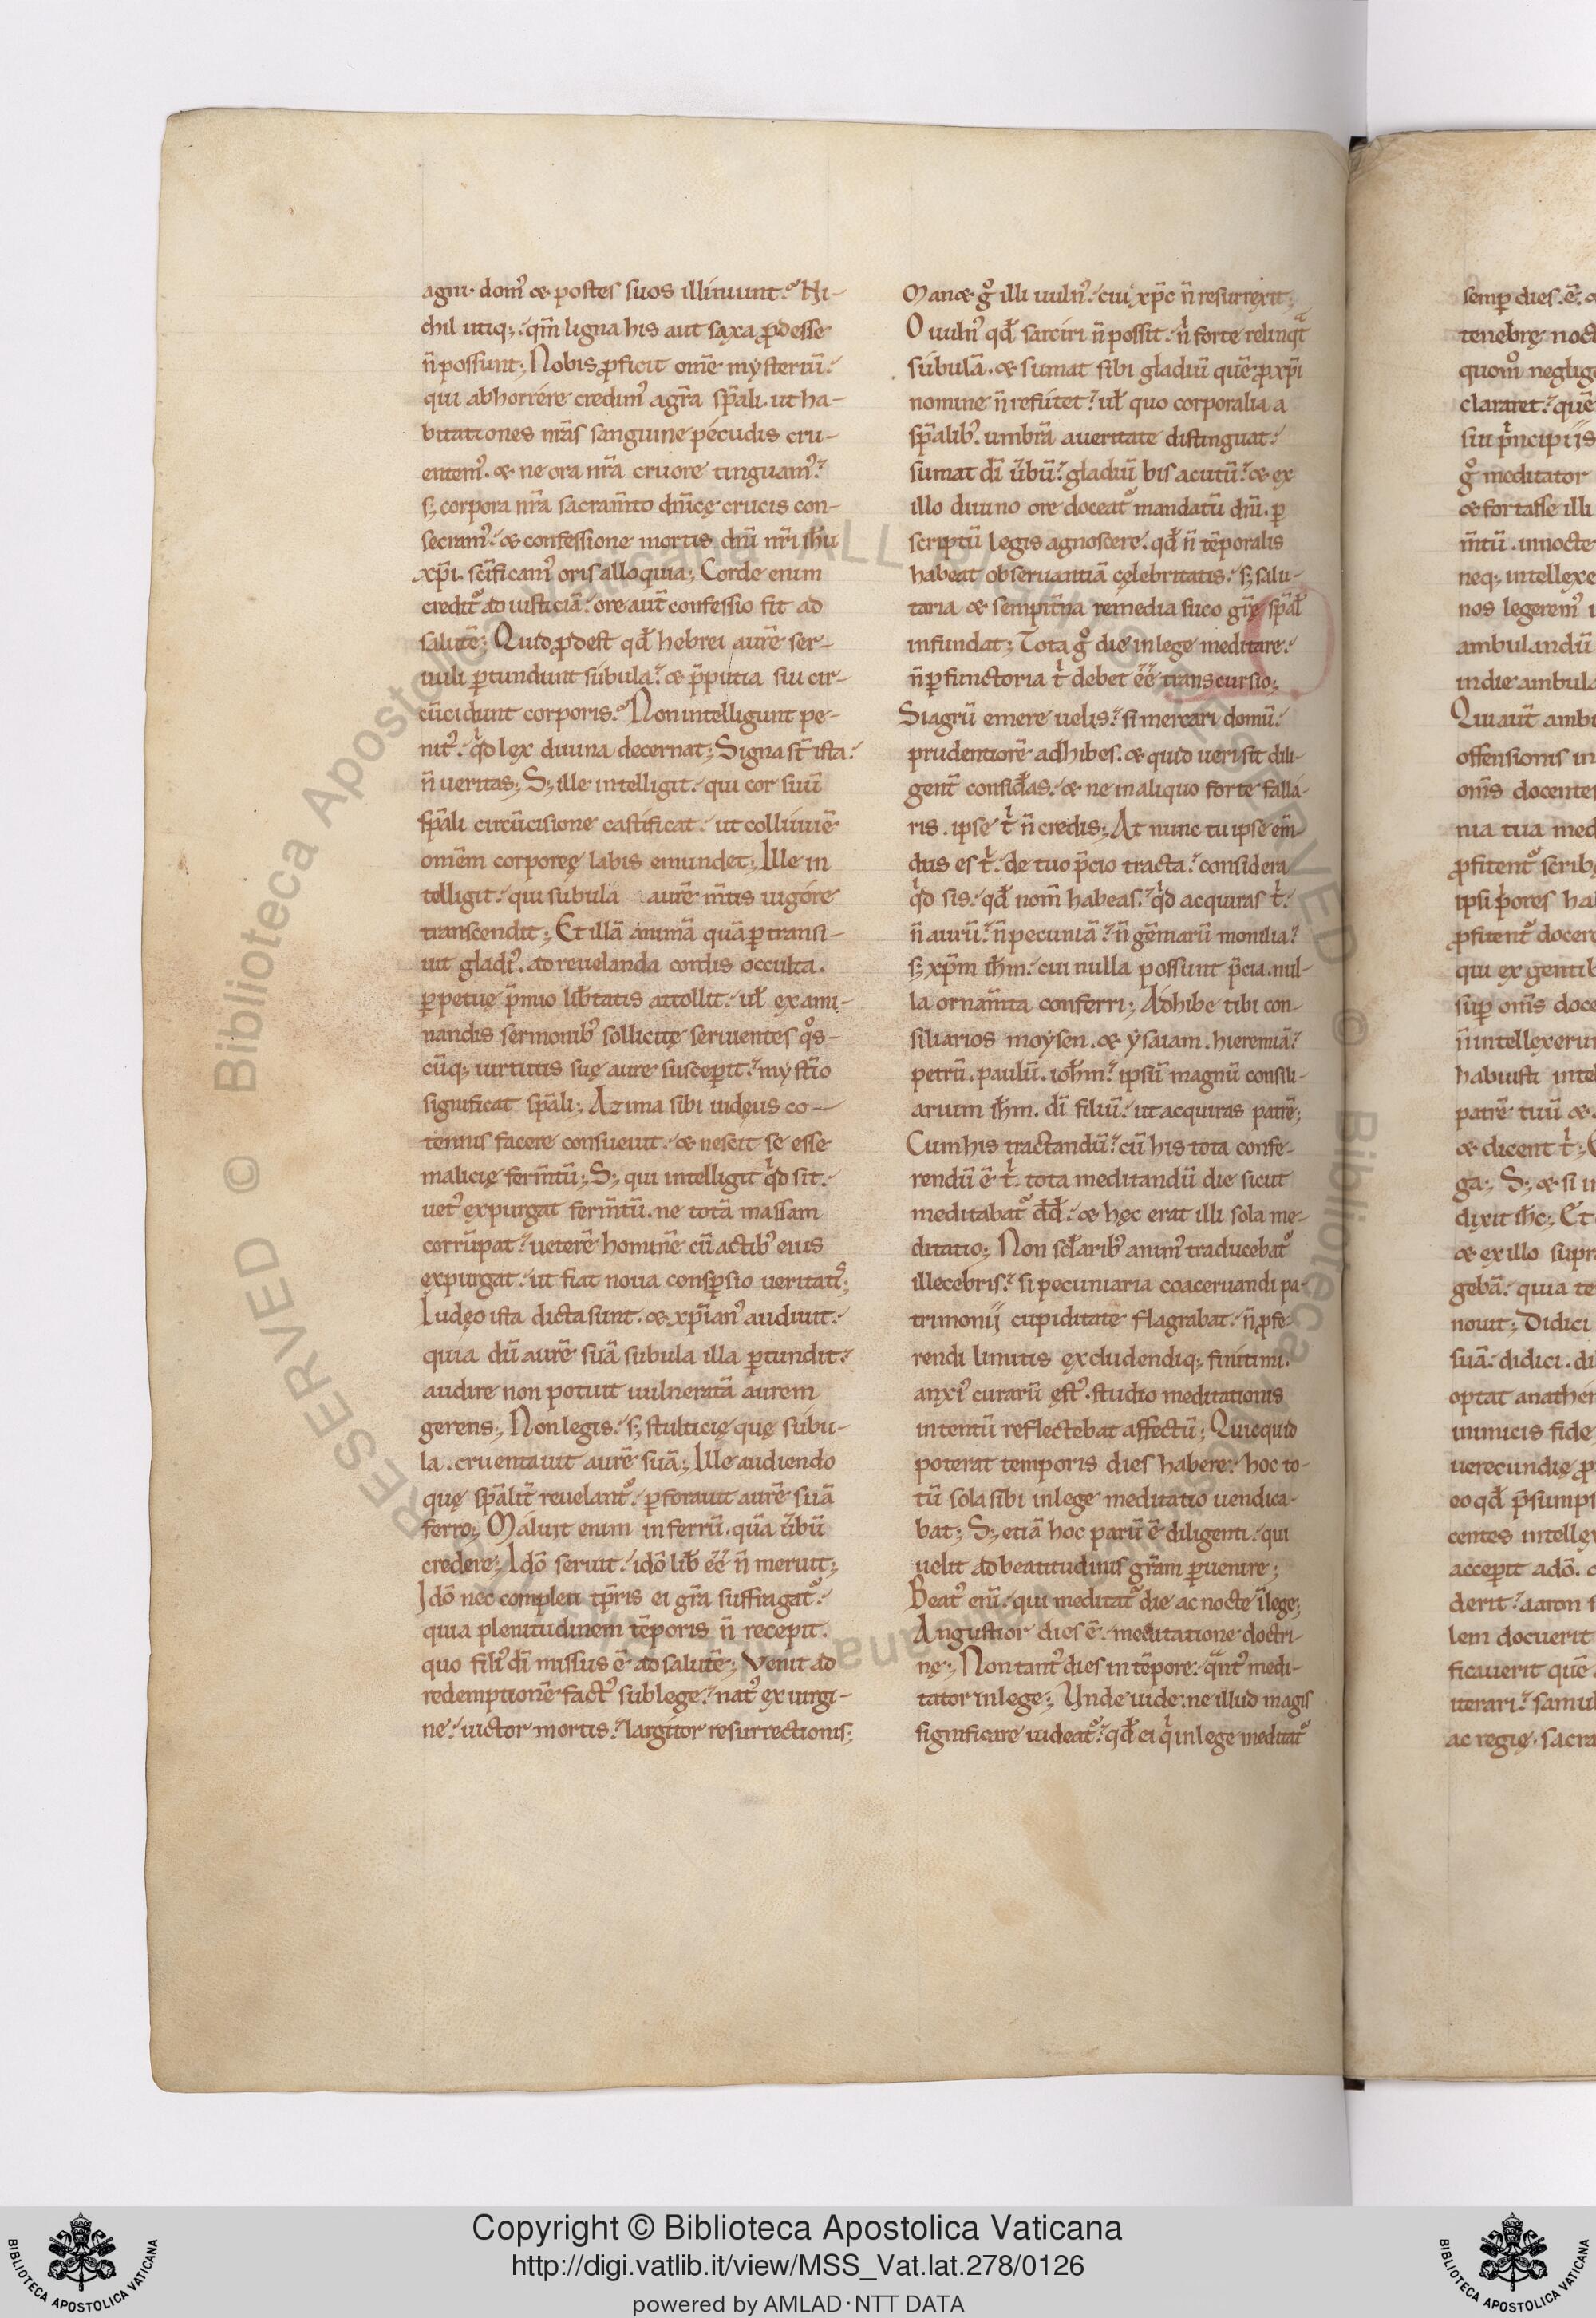 agni. domꝰ & postes suos illiniunt? Ni-
chil utiq;. qm̄ ligna his aut saxa ꝓdesse
n̄ possunt; Nobis ꝓficit om̄e mysteriū.
qui abhorrére credimꝰ agr̄a sp̄ali. ut ha-
bitationes nr̄as sanguine pécudis cru-
entemꝰ. & ne ora nr̄a cruore tinguamꝰ.
s; corpora nr̄a sacram̄to dn̄icę crucis con-
secramꝰ. & confessione mortis dn̄i nr̄i ih̄u
xp̄i. sc̄ificamꝰ oris alloquia; Corde enim
creditᷣ ad iusticiā. ore aut̄ confessio fit ad
salutē; Quid ꝓdest qd̄ hebrei aurē ser-
uuli ꝑtundunt súbula. & p̄putia sui cir-
cūcidunt corporis? Non intelligunt pe-
nitꝰ. qͥd lex diuina decernat; Signa st̄ ista.
n̄ ueritas; S; ille intelligit. qui cor suū
sp̄ali circūcisione castificat. ut colluuiē
om̄em corporeę labis emundet; Ille in
telligit. qui subula aurē m̄tis uigóre
transcendit; Et illā animā quā ꝑtransi-
uit gladiꝰ. ad reuelanda cordis occulta.
ꝑpetuę p̄mio lib̄tatis attollit. ul̄ exami-
nandis sermonibꝰ sollicitę seruientes qͦs-
cūq; uirtutis suę aure suscepit. mystīo
significat sp̄ali; Azima sibi iudęus co-
tennis facere consueuit. & nescit se esse
malicię ferm̄tū; S; qui intelligit qͥd sit.
uetꝰ expurgat ferm̄tū. ne totā massam
corrūpat. ueterē hominē cū actibꝰ eius
expurgat. ut fiat noua consꝑsio ueritatis;
Iudęo ista dicta sunt. & xp̄ianꝰ audiuit.
quia dū aurē suā subula illa ꝑtundit.
audire non potuit uulneratā aurem
gerens; Non legis. s; stulticię quę súbu-
la. cruentauit aurē suā; Ille audiendo
quę sp̄alit̄ reuelantᷣ. ꝑforauit aurē suā
ferro; Máluit enim in ferrū. quā ūbū
credere; Idō seruit. idō lib̄ ēē n̄ meruit;
Idō nec completi tp̄ris ei gr̄a suffragatᷣ.
quia plenitudinem tēporis n̄ recepit.
quo filiꝰ dī missus ē ad salutē; Venit ad
redemptionē factꝰ sub lege. natꝰ ex uirgi-
ne. uictor mortis. largitor resurrectionis;
Man& gͦ illi uulnꝰ. cui xp̄c n̄ resurrexit;
O uulnꝰ qd̄ sarciri n̄ possit. nͥ forte relinqᵃt
súbulā. & sumat sibi gladiū quē ꝓ xp̄i
nomine n̄ refútet. ul̄ quo corporalia a
sp̄alibꝰ. umbrā a ueritate distinguat.
sumat dī ūbū. gladiū bis acutū. & ex
illo diuino ore doceatᷣ mandatū dn̄i. ꝑ
scriptū legis agnoscere. qd̄ n̄ tēporalis
habeat obseruantiā cęlebritatis. s; salu-
taria & sempit̄na remedia suco gr̄ę sp̄al̄
infundat; Tota gͦ die in lege meditare.
n̄ ꝑfunctoria tͥ debet ēē transcursio;
Si agrū emere uelis. si mercari domū.
prudentiorē adhibes. & quid ueri sit dili-
gent̄ consid̄as. & ne in aliquo forte fallá-
ris. ipse tͥ n̄ credis; At nunc tu ipse em̄-
dus es tͥ. de tuo p̄cio tracta. considera
qͥd sis. qd̄ nom̄ habeas. qͥd acquiras tͥ.
n̄ aurū. n̄ pecuniā. n̄ gēmarū monilia.
s; xp̄m ih̄m. cui nulla possunt p̄cia. nul-
la ornam̄ta conferri; Adhibe tibi con-
siliarios moysen. & ysaiam. hieremiā.
petrū. paulū. ioh̄m. ipsū magnū consili-
arium ih̄m. dī filiū. ut acquiras patrē;
Cum his tractandū. cū his tota confe-
rendū ē tͥ. tota meditandū die sicut
meditabatᷣ dd̄. & hęc erat illi sola me-
ditatio; Non scl̄aribꝰ animꝰ traducebatᷣ
illecebris. si pecuniaria coaceruandi pa-
trimonij cupiditate flagrabat. n̄ ꝓfe-
rendi limitis excludendiq; finitimi.
anxiꝰ curarū ęstꝰ. studio meditationis
intentū reflectebat affectū; Quicquid
poterat temporis dies habere. hoc to-
tū sola sibi in lege meditatio uendica-
bat; S; etiā hoc parū ē diligenti. qui
uelit ad beatitudinis gr̄am ꝑuenire;
Beatꝰ eni. qui meditatᷣ die ac nocte ī lege;
Angustior dies ē. meditatione doctri-
nę; Non tantꝰ dies in tēpore. qᵃntꝰ medi-
tator in lege; Unde uide: ne illud magis
significare uideatᷣ. qd̄ ei qͥ in lege meditatᷣ
semꝑ dies. ē. &
tenebrę noct
quomͦ neglige
clararet. quē
sui pͥncipijs
gͦ meditator
& fortasse illi
m̄tū. in nocte
neq; intellexe
nos legeremꝰ
ambulandū
in die ambula
Qui aut̄ ambu
offensionis in
om̄s docentes
nia tua med
ꝓfitentᷣ scribę
ipsi pͥores ha
ꝓfitentᷣ docere
qui ex gentib
suꝑ om̄s doce
n̄ intellexerun
habuisti intel
patrē tuū &
& dicent tͥ;
ga; S; & si in
dixit ih̄c; Et
& ex illo supr
gebā. quia te
nouit; Didici
suā. didici. di
optat anathem
inimicis fide
uerecundię
eo qd̄ p̄sumps
centes intellex
accepit a dō.
derit. aaron
lem docuerit
ficauerit quē
uterari. samu
ac regię. sacra
Copyright © Biblioteca Apostolica Vaticana
http://digi.vatlib.it/view/MSS_Vat.lat.278/0126
powered by AMLAD·NTT DATA
BIBLIOTECA APOSTOLICA VATICANA
BIBLIOTECA APOSTOLICA VATICANA